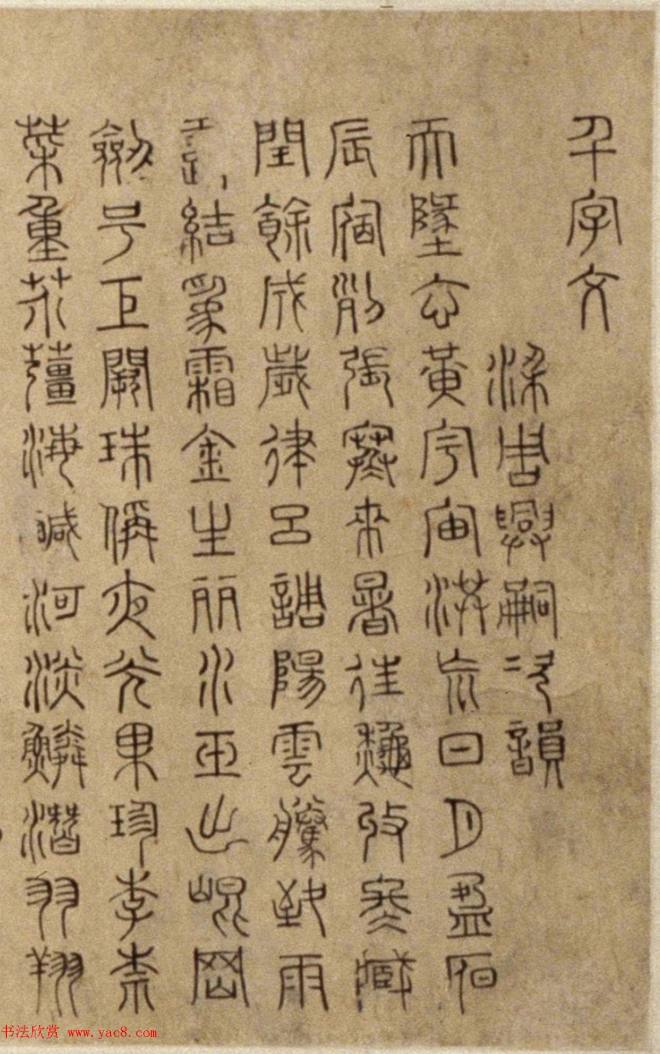 千字文
梁周興嗣次韻
天地玄黃宇宙洪荒日月盈昃
辰宿列張寒來暑往秋收冬藏
閏餘成歲律呂調陽雲騰致雨
結為霜金生麗水玉出崐岡
劍号巨闕珠稱夜光果珍李柰
菜重芥薑海鹹河淡鱗潛羽翔
书法欣赏 www.yac8.com